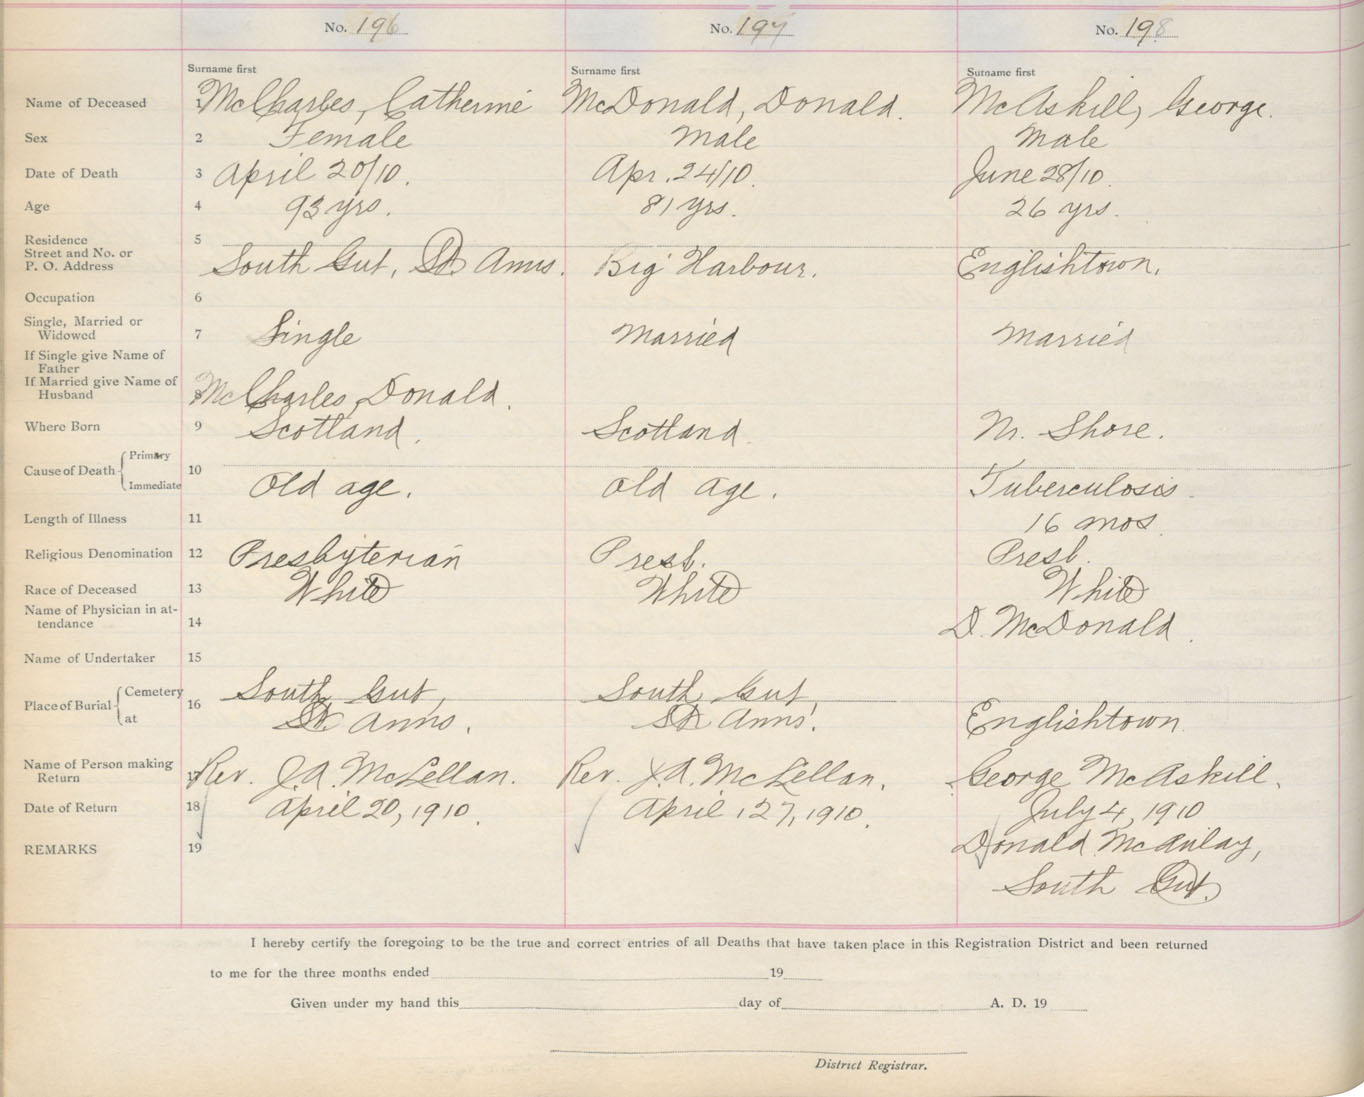 No. 196 No. 197 No. 198
Surname first Surname first Surname first
Name of Deceased 1 McCharles, Catherine McDonald, Donald. McAskill, George.
Sex 2 Female Male Male
Date of Death 3 April 20/10. Apr. 24/10. June 28/10.
Age 4 93 yrs. 81 yrs. 26 yrs.
Residence 5
Street and No. or
P. O. Address South Gut, St Anns. Big Harbour. Englishtown.
Occupation 6
Single, Married or
Widowed 7 Single Married Married
If Single give Name of
Father
If Married give Name of
Husband 8 McCharles, Donald.
Where Born 9 Scotland. Scotland. N. Shore.
Cause of Death Primary 10
Immediate Old age. Old age. Tuberculosis
Length of Illness 11 16 mos
Religious Denomination 12 Presbyterian Presb. Presb.
Race of Deceased 13 White White White
Name of Physician in at-
tendance 14 D. McDonald.
Name of Undertaker 15
Place of Burial Cemetery 16 South Gut, South Gut,
at St. Anns. St Anns'. Englishtown
Name of Person making
Return 17 Rev. J.A. McLellan. Rev. J.A. McLellan. George McAskill.
Date of Return 18 April 20, 1910. April 27, 1910. July 4, 1910
REMARKS 19 Donald McAulay,
South Gut.
I hereby certify the foregoing to be the true and correct entries of all Deaths that have taken place in this Registration District and been returned
to me for the three months ended 19
Given under my hand this day of A. D. 19
District Registrar.